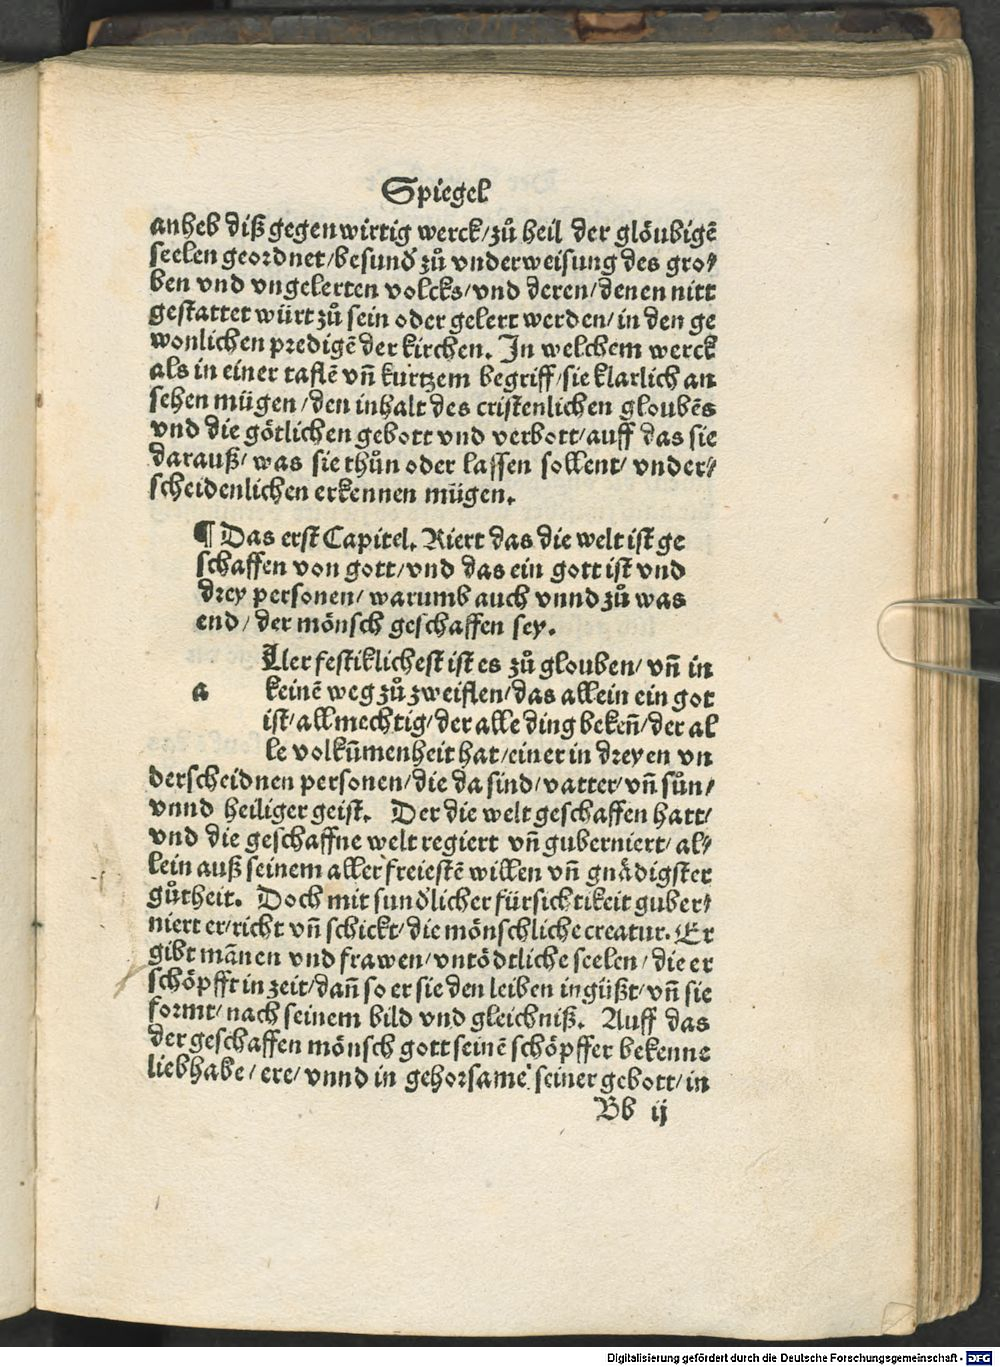 Spiegel
anheb diß gegenwirtig werck/zů heil der glöubigē
seelen geordnet/besund̛ zů vnderweisung des gro⸗
ben vnd vngelerten volcks/vnd deren/denen nitt
gestattet würt zů sein oder gelert werden/in den ge
wonlichen predigē der kirchen. In welchem werck
als in einer taflē vn̄ kurtzem begriff/sie klarlich an
sehen mügen/den inhalt des cristenlichen gloubēs
vnd die götlichen gebott vnd verbott/auff das sie
darauß/was sie thůn oder lassen sollent/vnder⸗
scheidenlichen erkennen mügen.
¶ Das erst Capitel. Riert das die welt ist ge
schaffen von gott/vnd das ein gott ist vnd
drey personen/warumb auch vnnd zů was
end/der mönsch geschaffen sey.
Ller festiklichest ist es zů glouben/vn̄ in
a keinē weg zů zweiflen/das allein ein got
ist/allmechtig/der alle ding beken̄/der al
le volkūmenheit hat/einer in dreyen vn
derscheidnen personen/die da sind/vatter/vn̄ sůn/
vnnd heiliger geist. Der die welt geschaffen hatt/
vnd die geschaffne welt regiert vn̄ guberniert/al⸗
lein auß seinem aller freiestē willen vn̄ gnädigster
gůtheit. Doch mit sund̛licher fürsichtikeit guber⸗
niert er/richt vn̄ schickt/die mönschliche creatur. Er
gibt mānen vnd frawen/vntödtliche seelen/die er
schöpfft in zeit/dan̄ so er sie den leiben ingüßt/vn̄ sie
formt/nach seinem bild vnd gleichniß. Auff das
der geschaffen mönsch gott seinē schöpffer bekenne
liebhabe/ere/vnnd in gehorsame seiner gebott/in
Bb ij
Digitalisierung gefördert durch die Deutsche Forschungsgemeinschaft - DFG